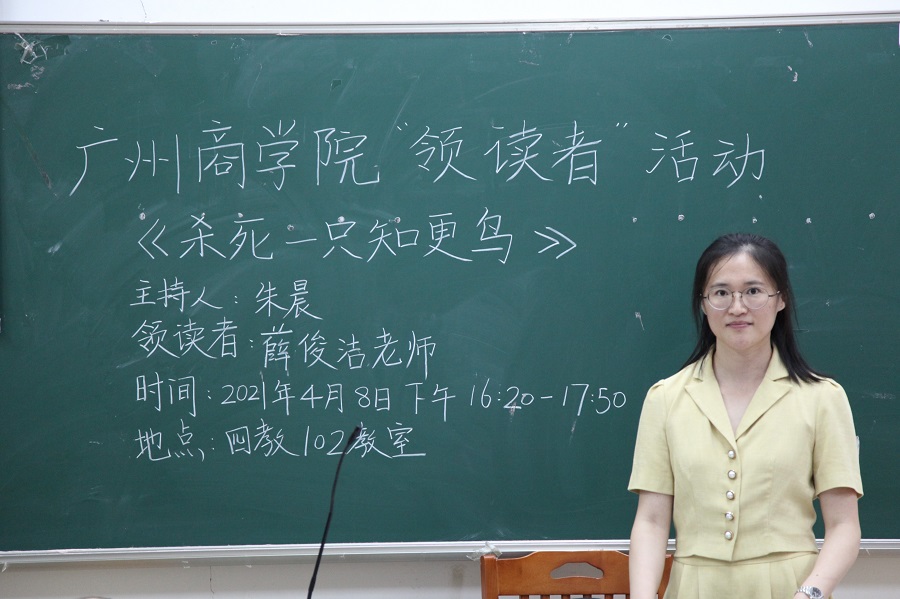 广州商学院“领读者”活动
《杀死一只知更鸟》
主持人：朱晨
领读者：薛俊洁老师
时间：2021年4月8日下午 16:20-17:50
地点：四教102教室